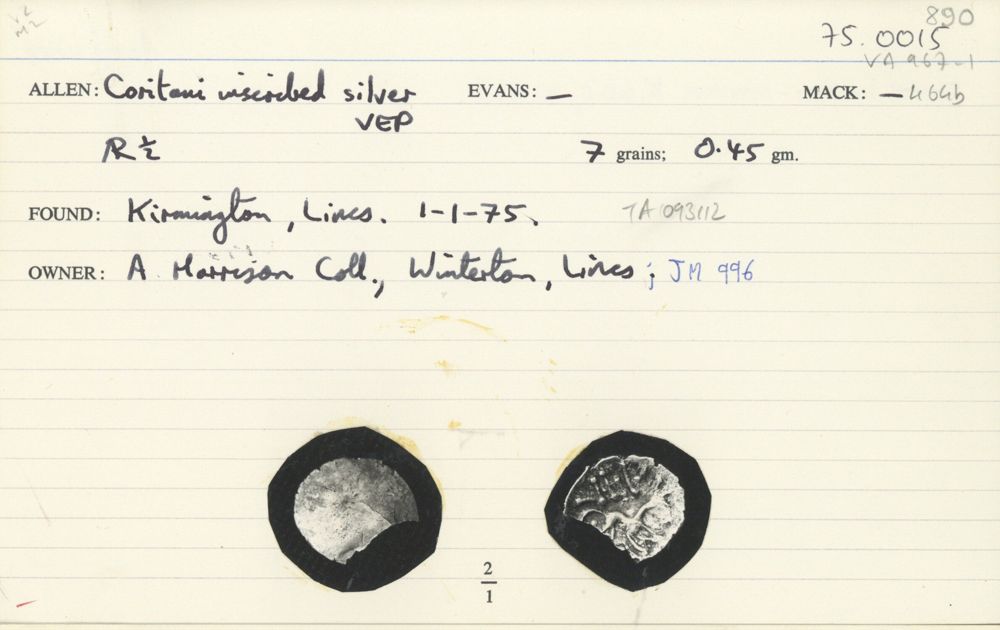 890
75.0015
VA 967-1
ALLEN: Coritani inscribed silver EVANS: — MACK: — 464b
VEP
AR ½ 7 grains; 0.45 gm.
FOUND: Kirmington, Lincs. 1-1-75. TA 093112
OWNER: A Harrison Coll., Winterton, Lincs; JM 996
2
1